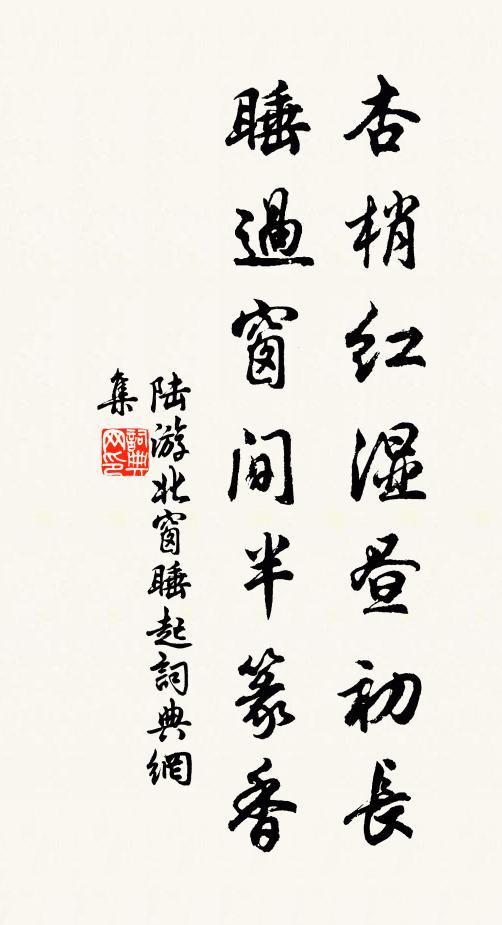 杏梢红湿昼初長
睡過窗间半篆香
陆游北窗睡起詞典網
集
詞典
网印